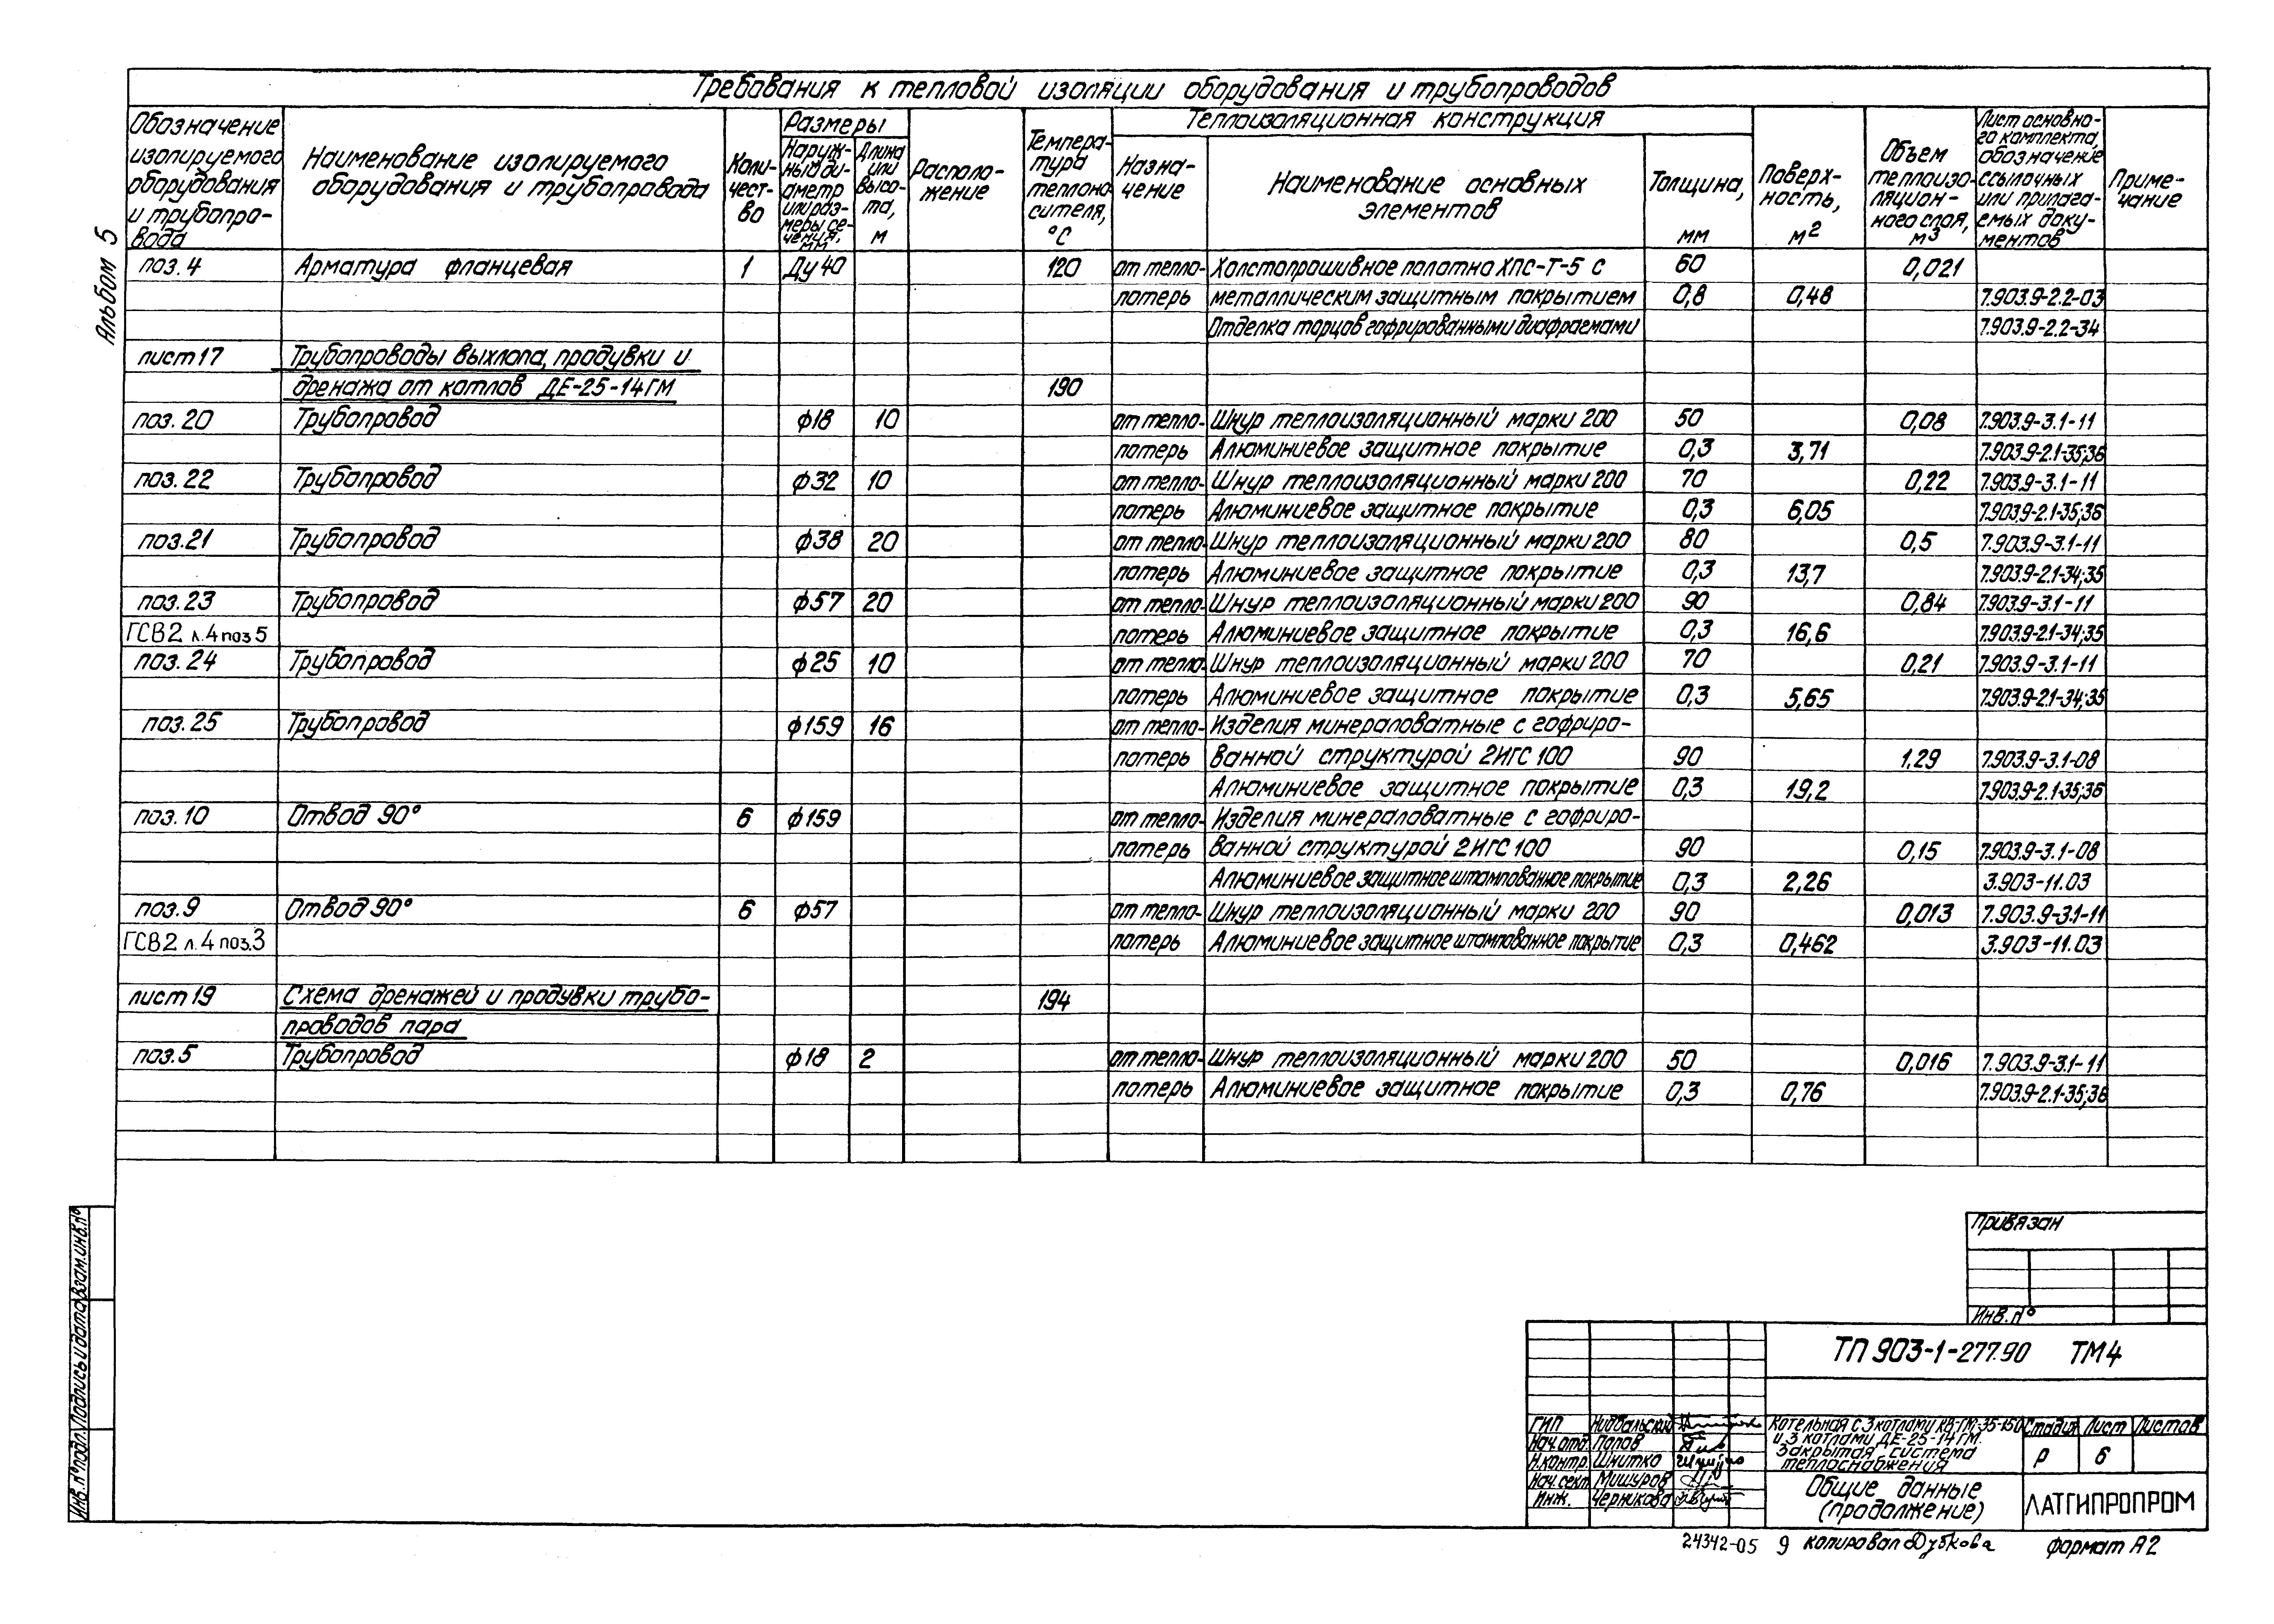 Альбом 5
Требования к тепловой изоляции оборудования и трубопроводов
Обозначение изолируемого оборудования и трубопро-вода
Наименование изолируемого оборудования и трубопровода
Коли-чест-во
Размеры
Наруж-ный ди-аметр или раз-меры се-чения, мм
Длина или высо-та, м
Располо-жение
Темпера-тура теплоно-сителя, °С
Теплоизоляционная конструкция
Назна-чение
Наименование основных элементов
Толщина, мм
Поверх-ность, м2
Объем теплоизо-ляцион-ного слоя, м3
Лист основно-го комплекта, обозначение ссылочных или прилага-емых доку-ментов
Приме-чание
поз.4 Арматура фланцевая 1 Ду 40 120 от тепло- Холстопрошивное полотно ХПС-Т-5 с 60 0,021
потерь металлическим защитным покрытием 0,8 0,48 7.903.9-2.2-03
Отделка торцов гофрированными диафрагмами 7.903.9-2.2-34
лист 17 Трубопроводы выхлопа, продувки и
дренажа от котлов ДЕ-25-14ГМ 190
поз. 20 Трубопровод ф18 10 от тепло- Шнур теплоизоляционный марки 200 50 0,08 7.903.9-3.1-11
потерь Алюминиевое защитное покрытие 0,3 3,71 7.903.9-2.1-35;36
поз. 22 Трубопровод ф32 10 от тепло- Шнур теплоизоляционный марки 200 70 0,22 7.903.9-3.1-11
потерь Алюминиевое защитное покрытие 0,3 6,05 7.903.9-2.1-35;36
поз.21 Трубопровод ф38 20 от тепло- Шнур теплоизоляционный марки 200 80 0,5 7.903.9-3.1-11
потерь Алюминиевое защитное покрытие 0,3 13,7 7.903.9-2.1-34;35
поз.23 Трубопровод ф57 20 от тепло- Шнур теплоизоляционный марки 200 90 0,84 7.903.9-3.1-11
ГСВ2 л.4 поз 5 потерь Алюминиевое защитное покрытие 0,3 16,6 7.903.9-2.1-34;35
поз. 24 Трубопровод ф25 10 от тепло- Шнур теплоизоляционный марки 200 70 0,21 7.903.9-3.1-11
потерь Алюминиевое защитное покрытие 0,3 5,65 7.903.9-2.1-34;35
поз. 25 Трубопровод ф159 16 от тепло- Изделия минераловатные с гофриро-
потерь ванной структурой 2ИГС 100 90 1.29 7.903.9-3.1-08
Алюминиевое защитное покрытие 0,3 19,2 7.903.9-2.1-35;36
поз. 10 Отвод 90° 6 ф159 от тепло- Изделия минераловатные с гофриро-
потерь ванной структурой 2ИГС 100 90 0,15 7.903.9-3.1-08
Алюминиевое защитное штампованное покрытие 0,3 2,26 3.903-11.03
поз.9 Отвод 90° 6 ф57 от тепло- Шнур теплоизоляционный марки 200 90 0,013 7.903.9-3.1-11
ГСВ2 л.4 поз.3 потерь Алюминиевое защитное штампованное покрытие 0,3 0,462 3.903-11.03
лист 19 Схема дренажей и продувки трубо- 194
проводов пара
поз.5 Трубопровод ф18 2 от тепло- Шнур теплоизоляционный марки 200 50 0,016 7.903.9-3.1-11
потерь Алюминиевое защитное покрытие 0,3 0,76 7.903.9-2.1-35;36
Инв.№ подл. Подпись и дата Взам.инв.№
Привязан
Инв.№
ТП 903-1-277.90 ТМ4
ГИП Нидбальский
Нач.отд. Попов
Н.контр. Шнитко
Нач.сект. Мишуров
Инж. Черникова
Котельная с 3 котлами КВ-ГМ-35-150
и 3 котлами ДЕ-25-14ГМ.
Закрытая система
теплоснабжения
Стадия Лист Листов
Р 6
Общие данные
(продолжение)
ЛАТГИПРОПРОМ
24342-05 9 копировал Дубкова формат А2